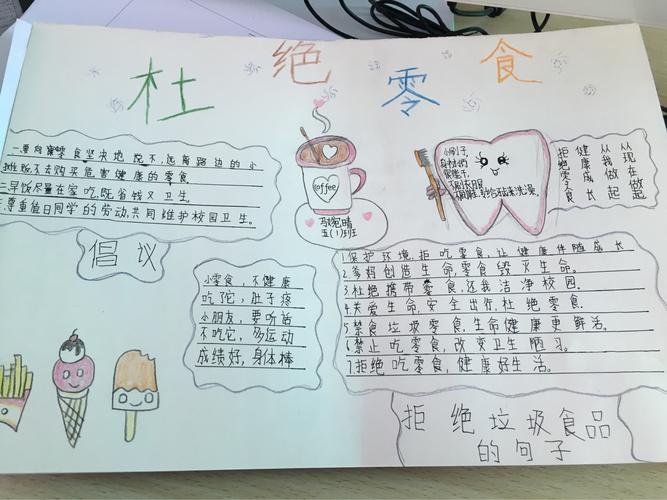 杜绝零食
一.要向零食坚决地说不,远离路边的小
摊贩不去购买危害健康的零食
二.早饭尽量在家吃,既省钱又卫生。
三.尊重值日同学的劳动,共同维护校园卫生。
倡议
coffee
五(1)班
小刷子,
身体
从现在做起
从我做起
健康成长
拒绝零食
小零食,不健康
吃了它,肚子疼
小朋友,要听话
不吃它,多运动
成绩好,身体棒
1.保护环境,拒吃零食,让健康伴随成长
2.爹妈创造生命,零食毁灭生命。
3.杜绝携带零食,还我洁净校园。
4.关爱生命,安全出行,杜绝零食。
5.禁食垃圾零食,生命健康更鲜活。
6.禁止吃零食,改变卫生陋习。
7.拒绝吃零食,健康好生活。
拒绝垃圾食品
的句子